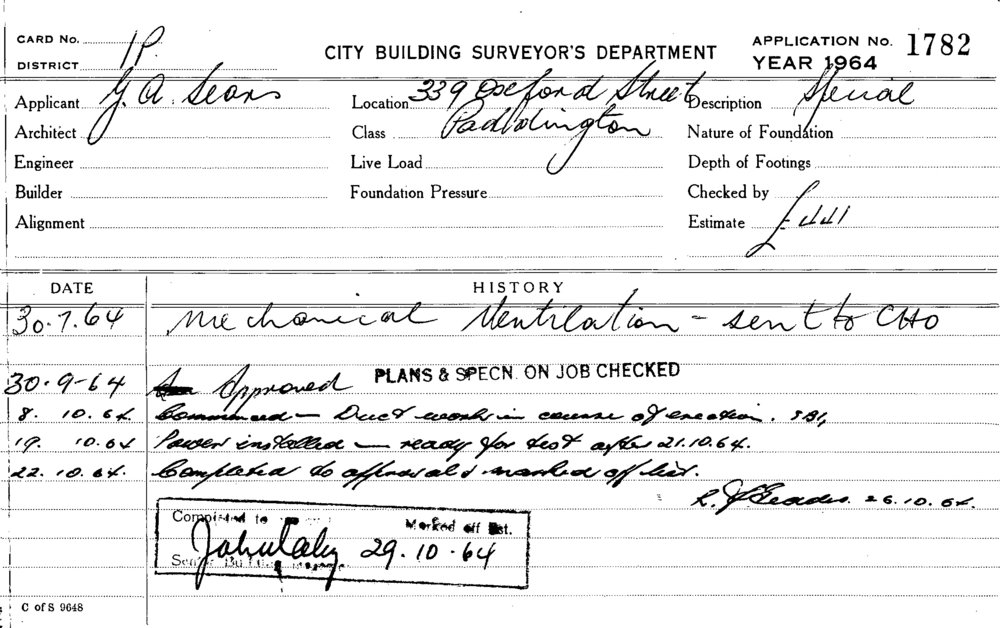 CARD No. 1P
DISTRICT
CITY BUILDING SURVEYOR'S DEPARTMENT
APPLICATION No. 1782
YEAR 1964
Applicant G. A. Sears
Location 339 Oxford Street
Description Special
Architect
Class Paddington
Nature of Foundation
Engineer
Live Load
Depth of Footings
Builder
Foundation Pressure
Checked by
Alignment
Estimate £441
DATE
HISTORY
30.7.64 Mechanical Ventilation - sent to CHO
PLANS & SPECN. ON JOB CHECKED
30.9-64 Approved
8. 10.64. Commenced - Duct work in course of erection.
19. 10.64 Power installed - ready for test after 21.10.64.
22.10.64. Completed to approval & marked off list.
26.10.64.
Completed to Marked off list.
29.10.64
C of S 9648